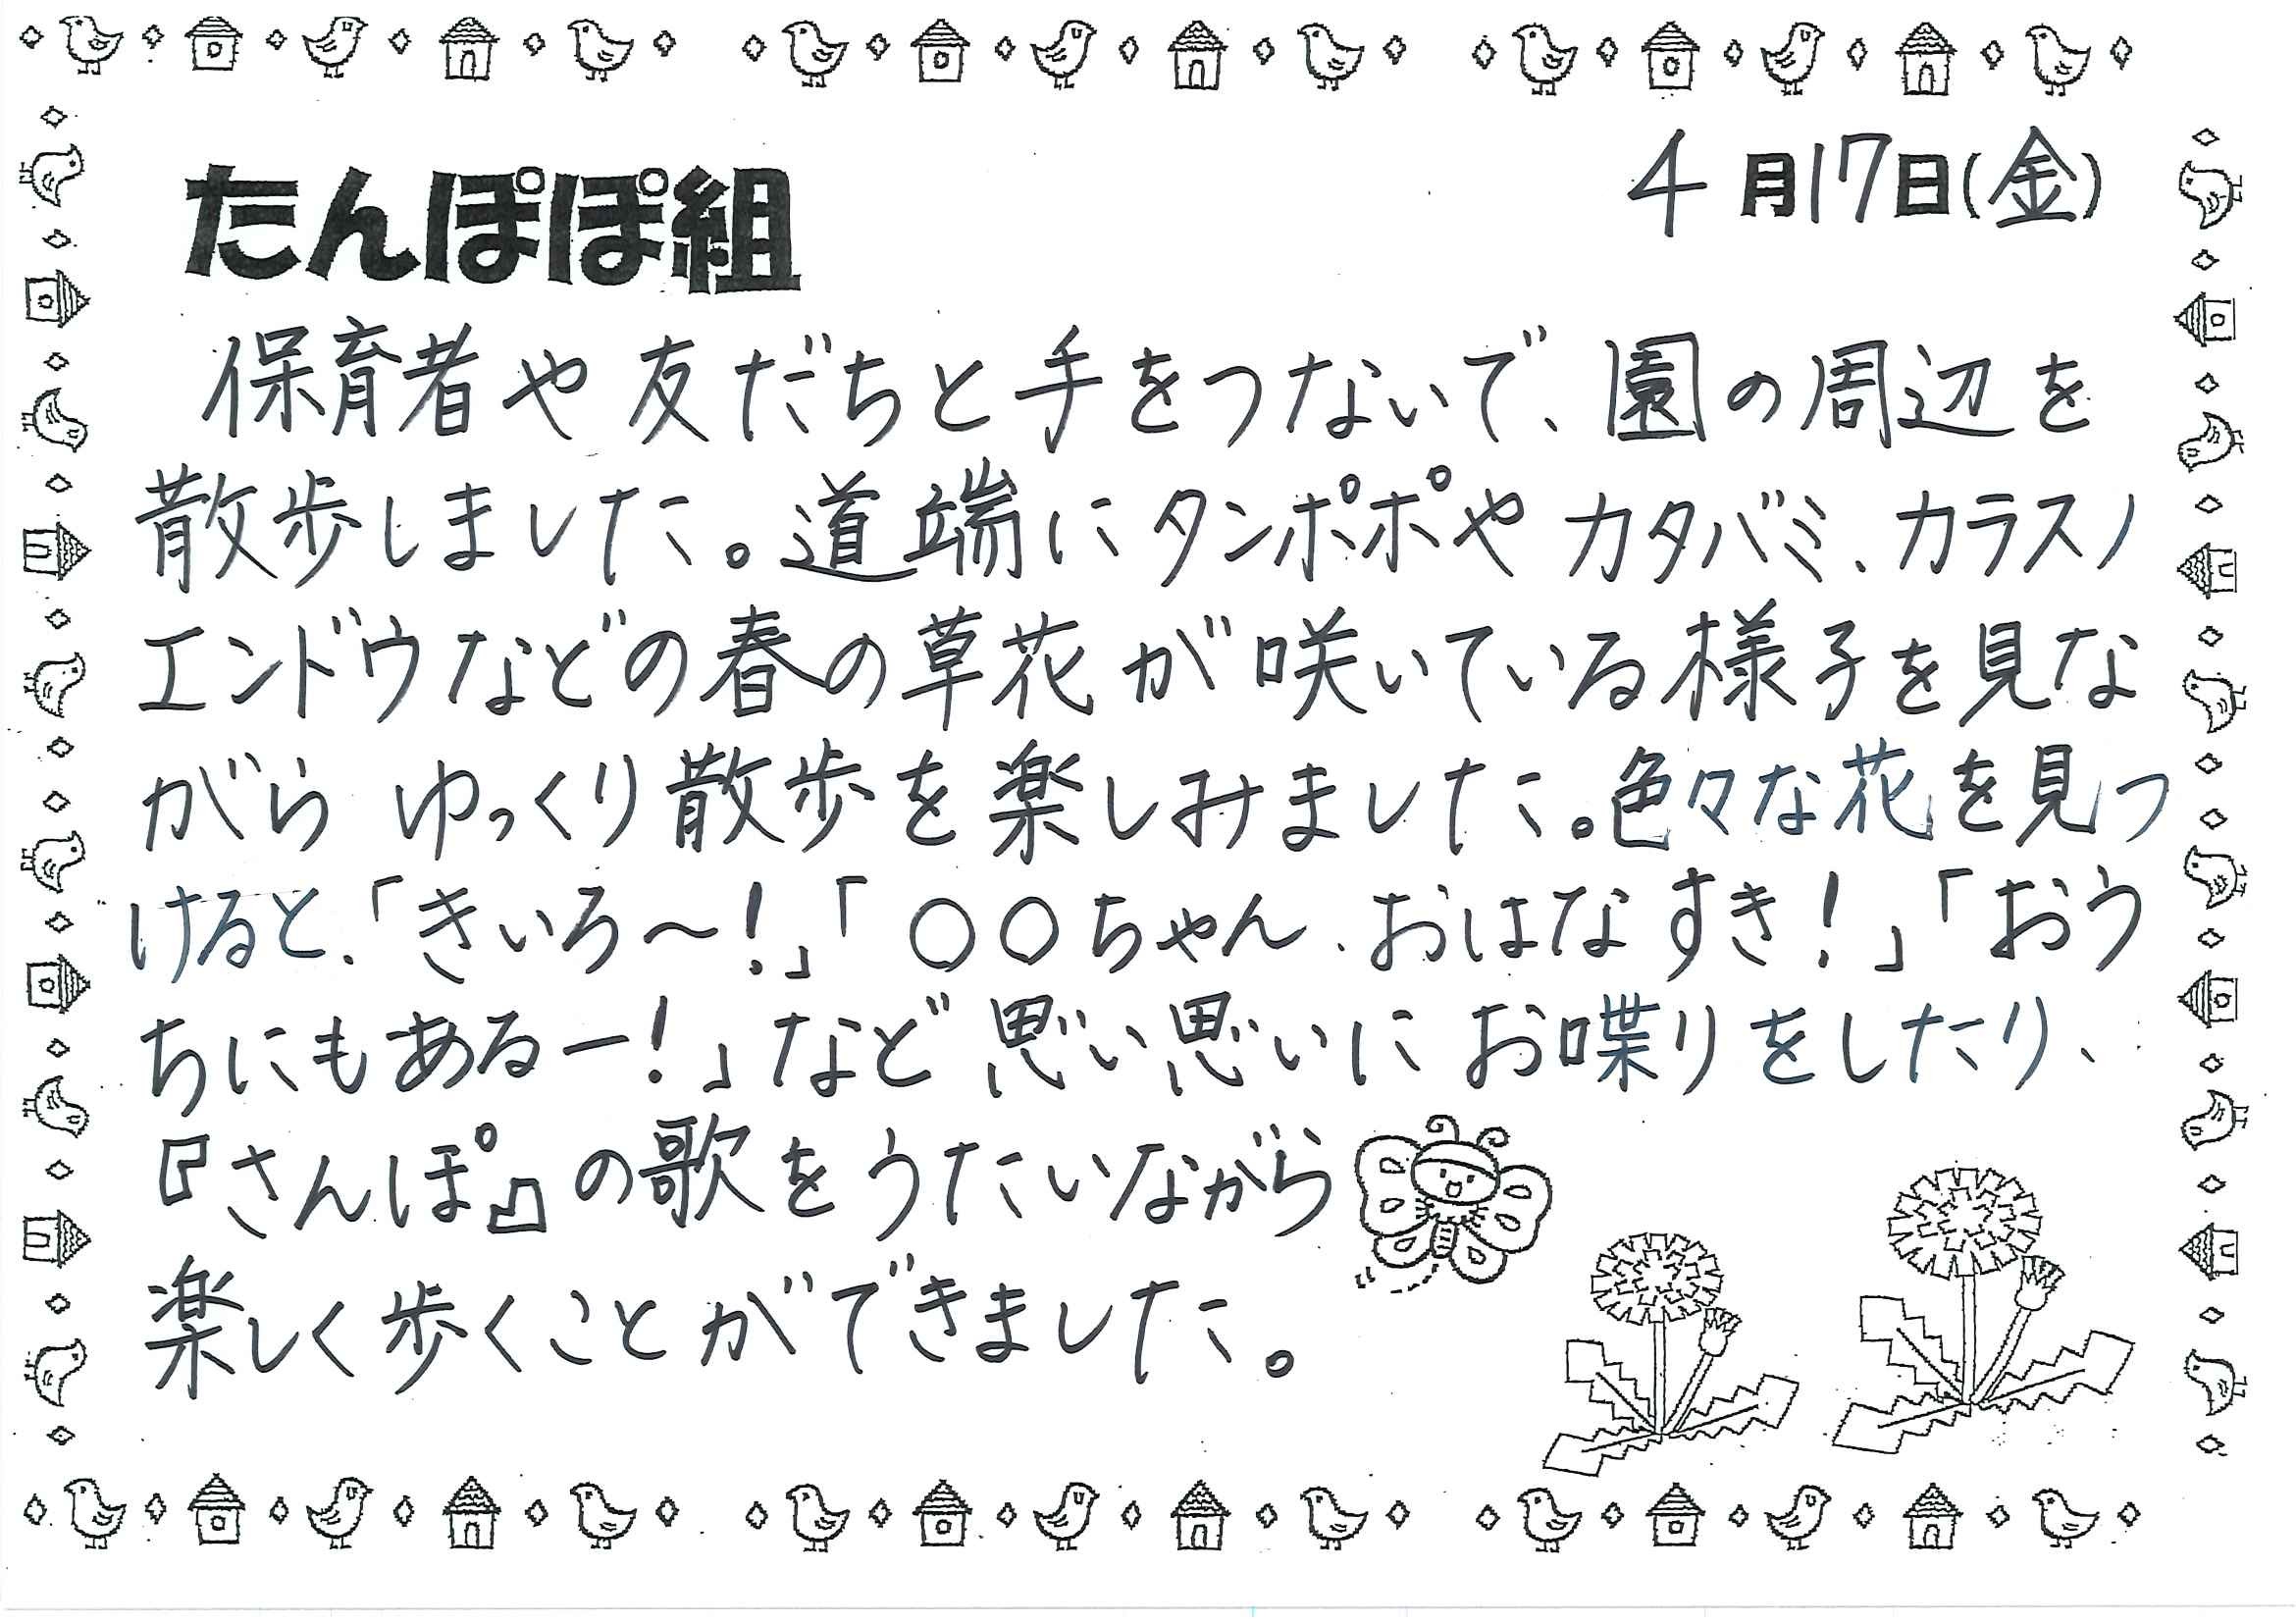 たんぽぽ組
4月17日(金)
保育者や友だちと手をつないで、園の周辺を
散歩しました。道端にタンポポやカタバミ、カラスノ
エンドウなどの春の草花が咲いている様子を見な
がらゆっくり散歩を楽しみました。色々な花を見つ
けると、「きいろ〜!」「○○ちゃん、おはなすき!」「おう
ちにもあるー!」など思い思いにお喋りをしたり、
『さんぽ』の歌をうたいながら
楽しく歩くことができました。